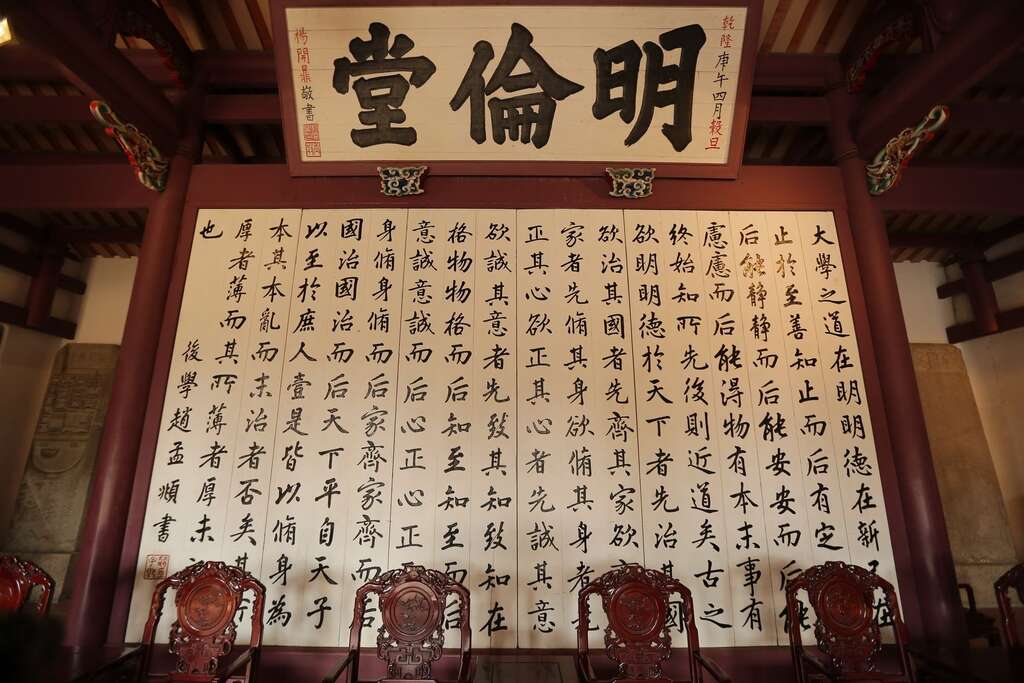 明倫堂
乾隆庚午四月穀旦
楊開鼎敬書
大學之道在明明德在新民在
止於至善知止而后有定
后能靜靜而后能安安而后
慮慮而后能得物有本末事有
終始知所先後則近道矣古之
欲明明德於天下者先治其國
欲治其國者先齊其家欲
家者先脩其身欲脩其身者
正其心欲正其心者先誠其意
欲誠其意者先致其知致知在
格物物格而后知至知至而后
意誠意誠而后心正心正
身脩身脩而后家齊家齊而后
國治國治而后天下平自天子
以至於庶人壹是皆以脩身為
本其本亂而末治者否矣其所
厚者薄而其所薄者厚未
也
後學趙孟頫書